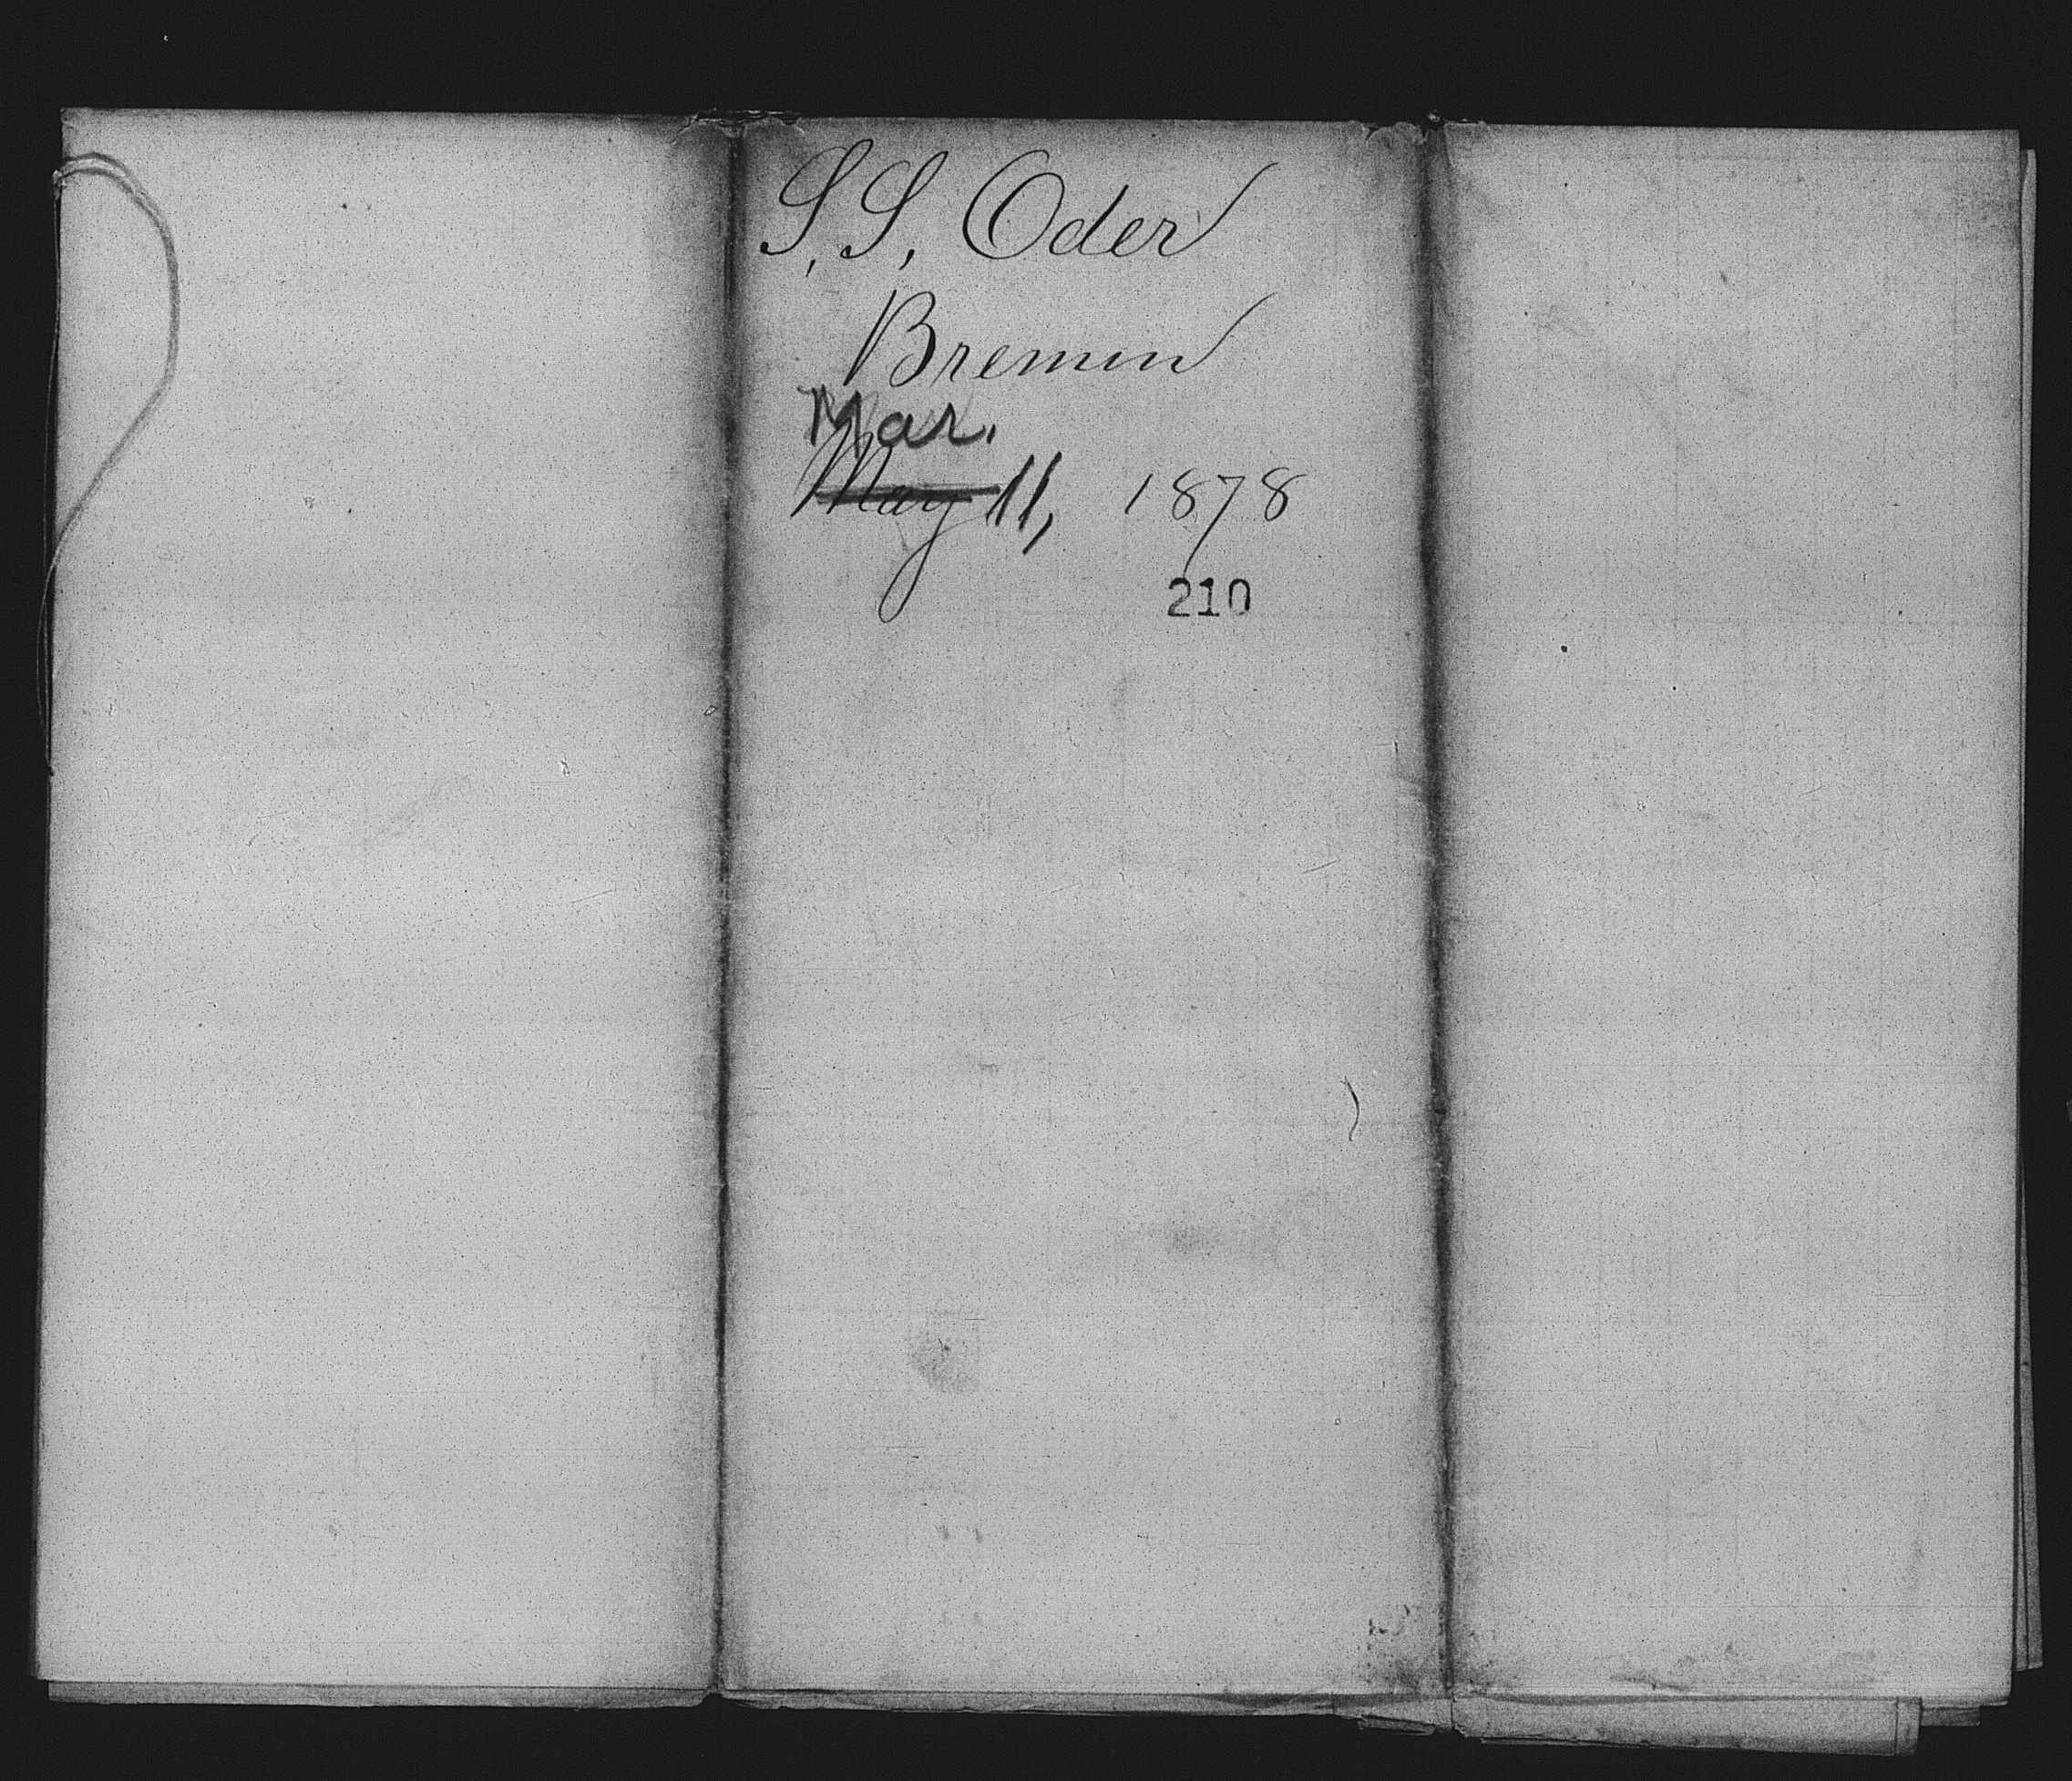 S, S, Oder
Bremen
Mar.
May 11, 1878
210